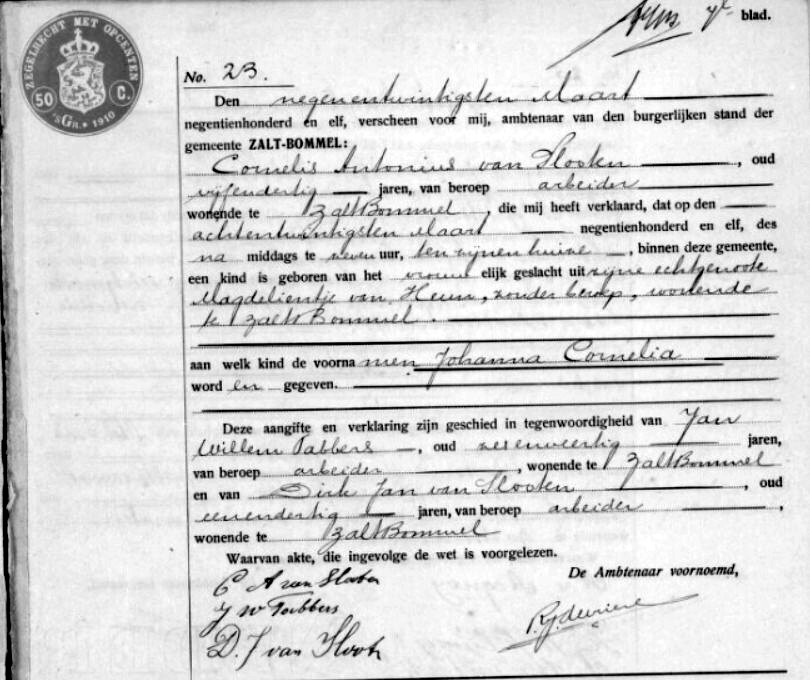 blad.
ZEGELRECHT MET OPCENTEN
50 C.
'sGr. 1910
No. 23.
Den negenentwintigsten Maart
negentienhonderd en elf, verscheen voor mij, ambtenaar van den burgerlijken stand der
gemeente ZALT-BOMMEL:
Cornelis Antonius van Slooten, oud
vijfendertig jaren, van beroep arbeider
wonende te ZaltBommel, die mij heeft verklaard, dat op den
achtentwintigsten Maart negentienhonderd en elf, des
na middags te zeven uur, ten zijnen huize, binnen deze gemeente,
een kind is geboren van het vrouw elijk geslacht uit zijne echtgenoote
Magdelientje van , zonder beroep, wonende
te ZaltBommel.
aan welk kind de voorna men Johanna Cornelia
word en gegeven.
Deze aangifte en verklaring zijn geschied in tegenwoordigheid van Jan
Willem Tabbers, oud zevenveertig jaren,
van beroep arbeider, wonende te ZaltBommel
en van Dirk Jan van Slooten, oud
eenendertig jaren, van beroep arbeider,
wonende te ZaltBommel
Waarvan akte, die ingevolge de wet is voorgelezen.
De Ambtenaar voornoemd,
C A van Slooten
J W Tabbers
D. J van Slooten